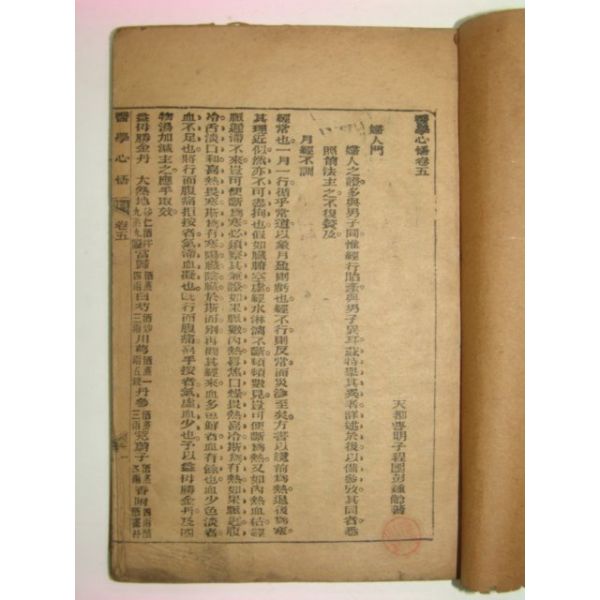 醫學心悟卷五
天都普明子程國彭鍾齡著
婦人門
婦人之證多與男子同惟經行胎產與男子異耳茲特舉其異者詳述於後以備參攷其同者悉
照前法主之不復贅及
月經不調
經常也一月一行循乎常道以象月盈則虧也經不行則反常而災沴至矣方書以趲前為熱退後為寒
其理近似然亦不可盡拘也假如臟腑空虛經水淋漓不斷頻頻數見豈可便斷為熱又如內熱血枯經
脈遲滯不來豈可便斷為寒必須察其兼證如果脈數內熱唇焦口燥畏熱喜冷斯為有熱如果脈遲腹
冷舌淡口和喜熱畏寒斯為有寒陽臟陰臟於斯而別再問其經來血多色鮮者血有餘也血少色淡者
血不足也將行而腹痛拒按者氣滯血凝也既行而腹痛喜手按者氣虛血少也予以益母勝金丹及四
物湯加減主之應手取效
益母勝金丹 大熟地 當歸 白芍 川芎 丹參 茺蔚子 香附
醫學心悟 卷五 一